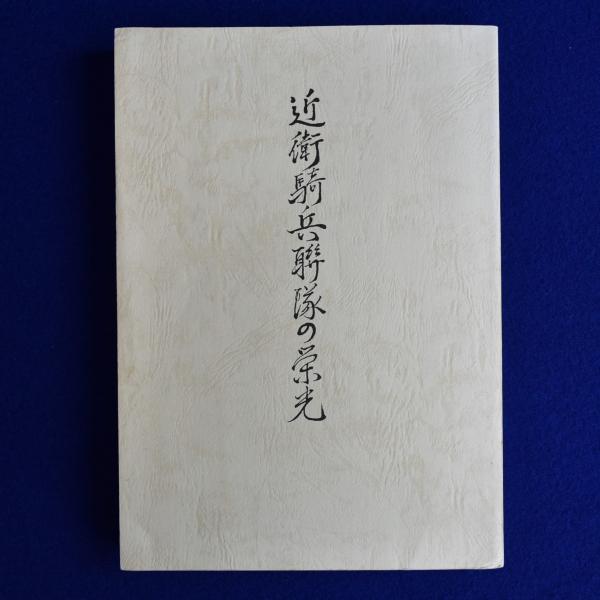 近衛騎兵聯隊の栄光